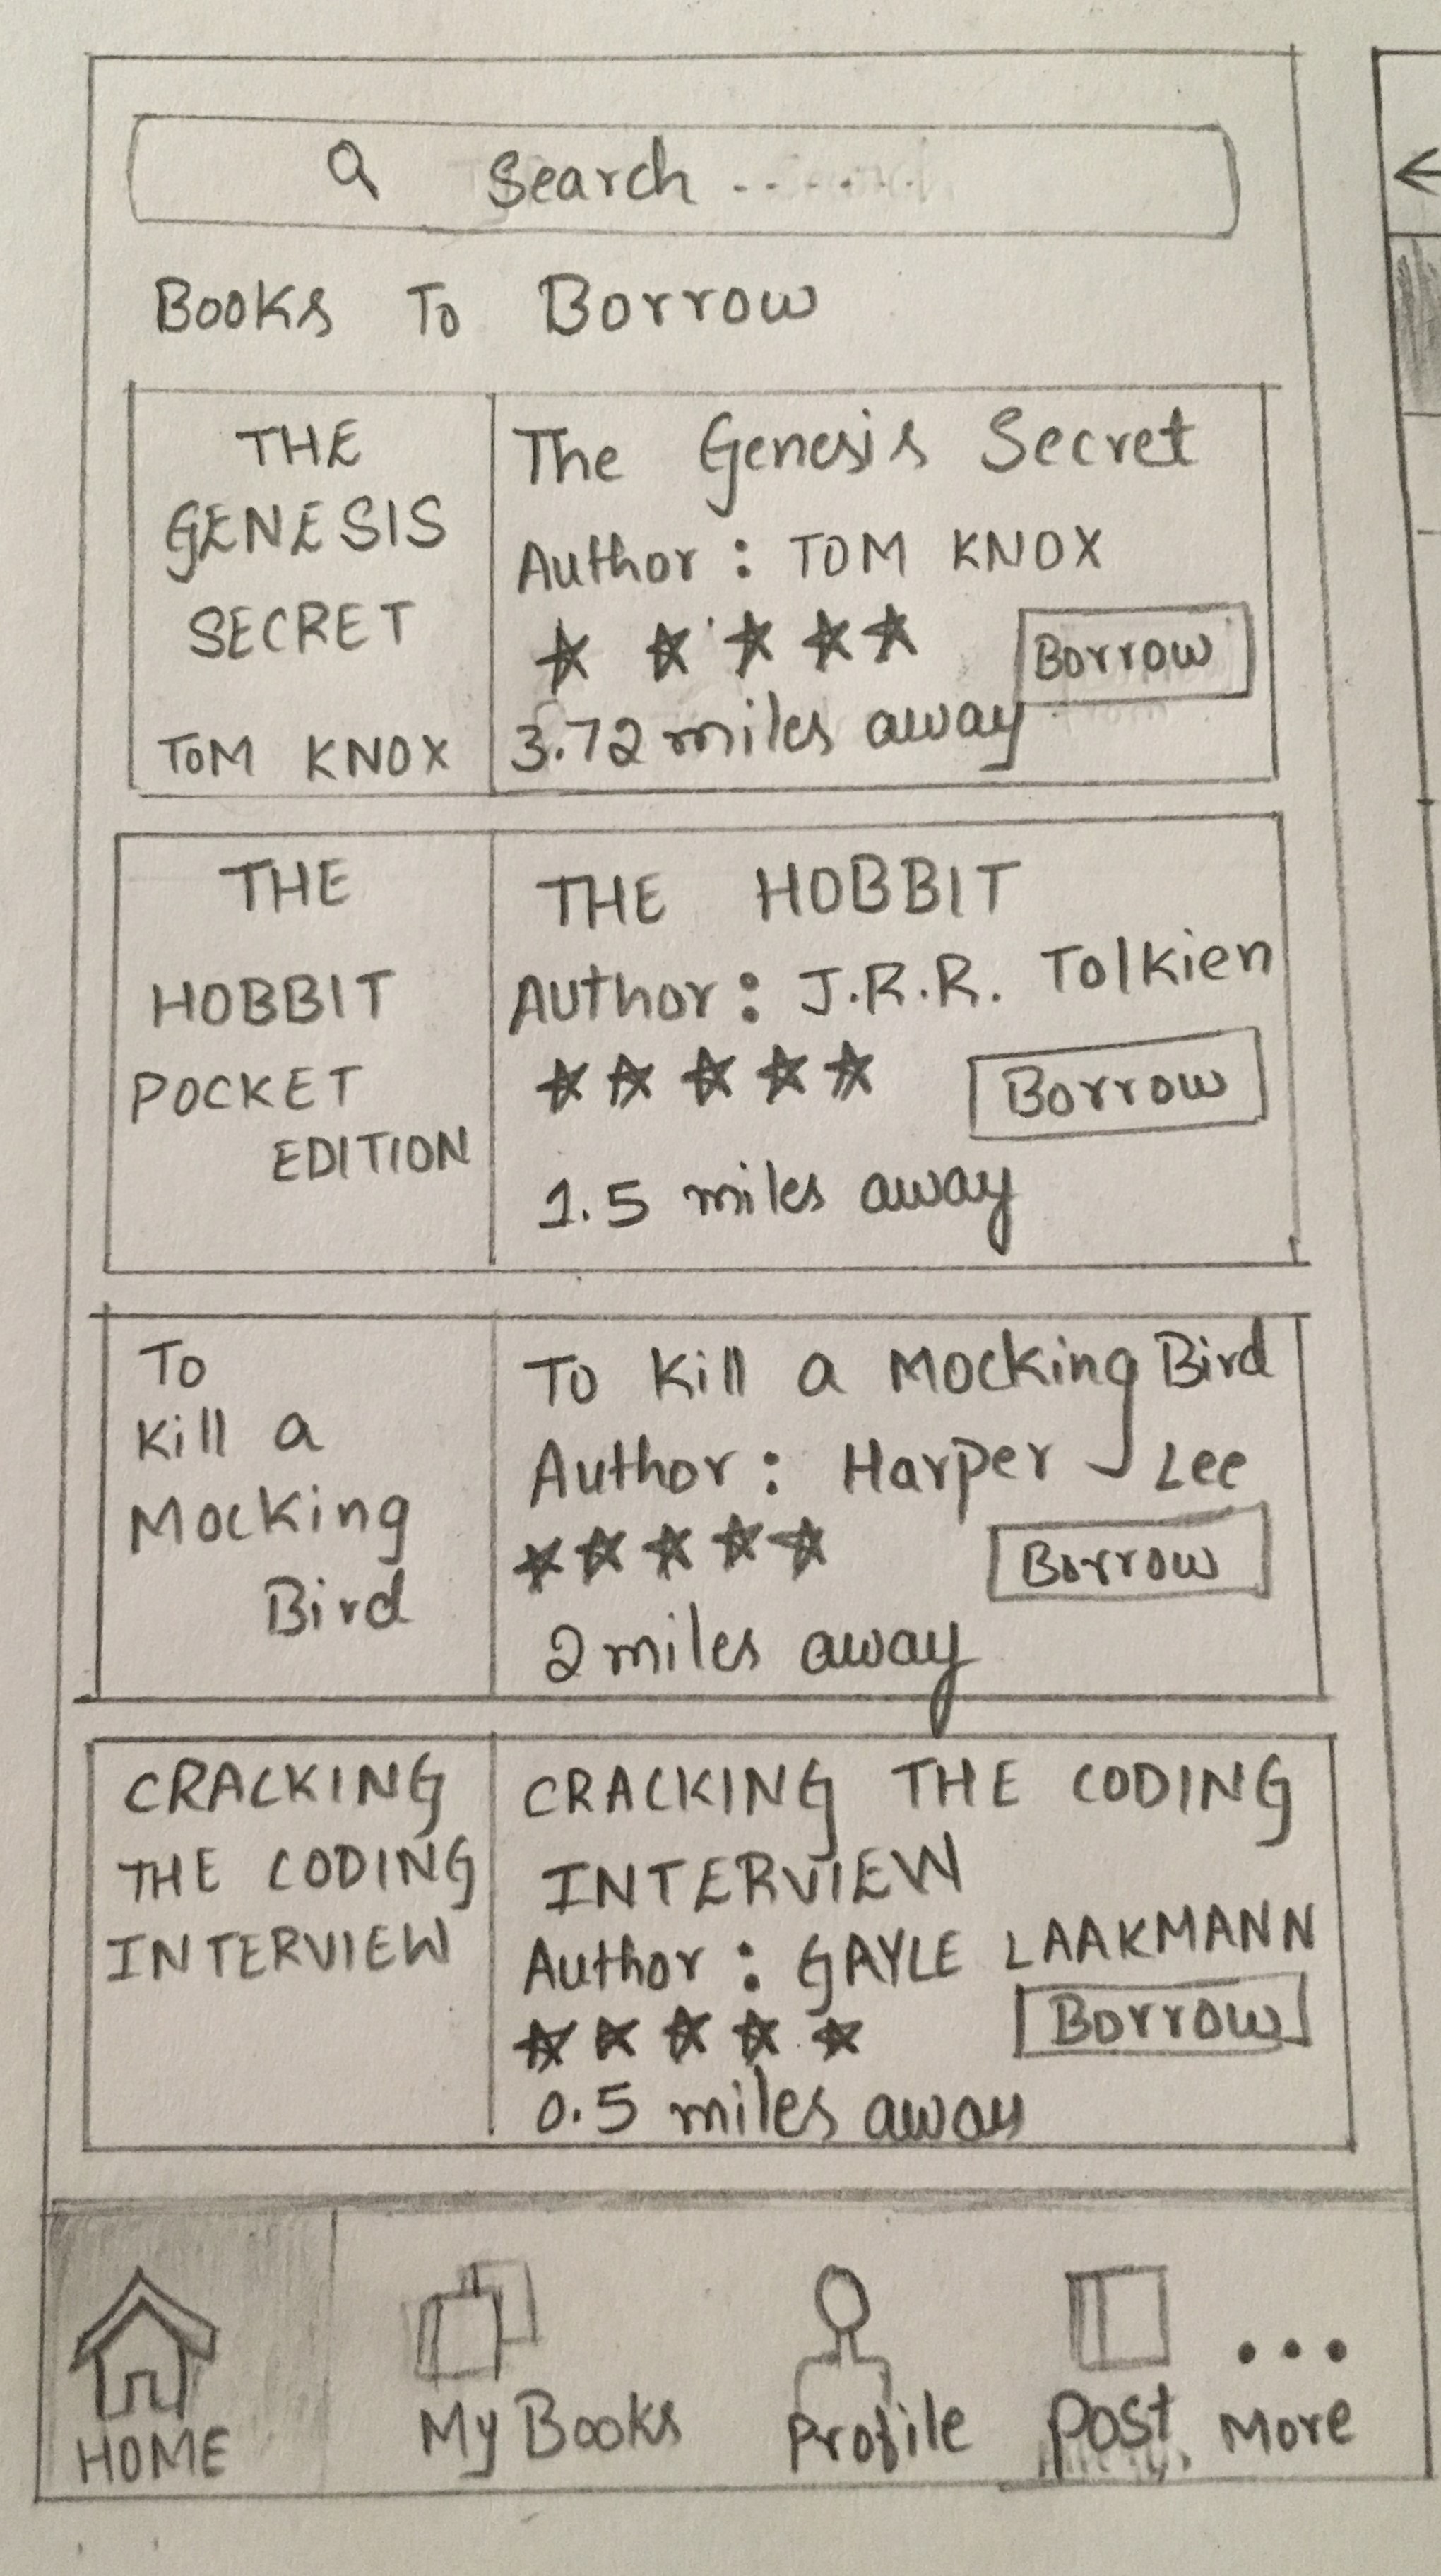 Search .......
Books To Borrow
THE
GENESIS
SECRET
TOM KNOX
The Genesis Secret
Author : TOM KNOX
Borrow
3.72 miles away
THE
HOBBIT
POCKET
EDITION
THE HOBBIT
Author : J.R.R. Tolkien
Borrow
1.5 miles away
To
Kill a
Mocking
Bird
To Kill a Mocking Bird
Author : Harper Lee
Borrow
2 miles away
CRACKING
THE CODING
INTERVIEW
CRACKING THE CODING
INTERVIEW
Author : GAYLE LAAKMANN
Borrow
0.5 miles away
HOME
My Books
Profile
Post
More